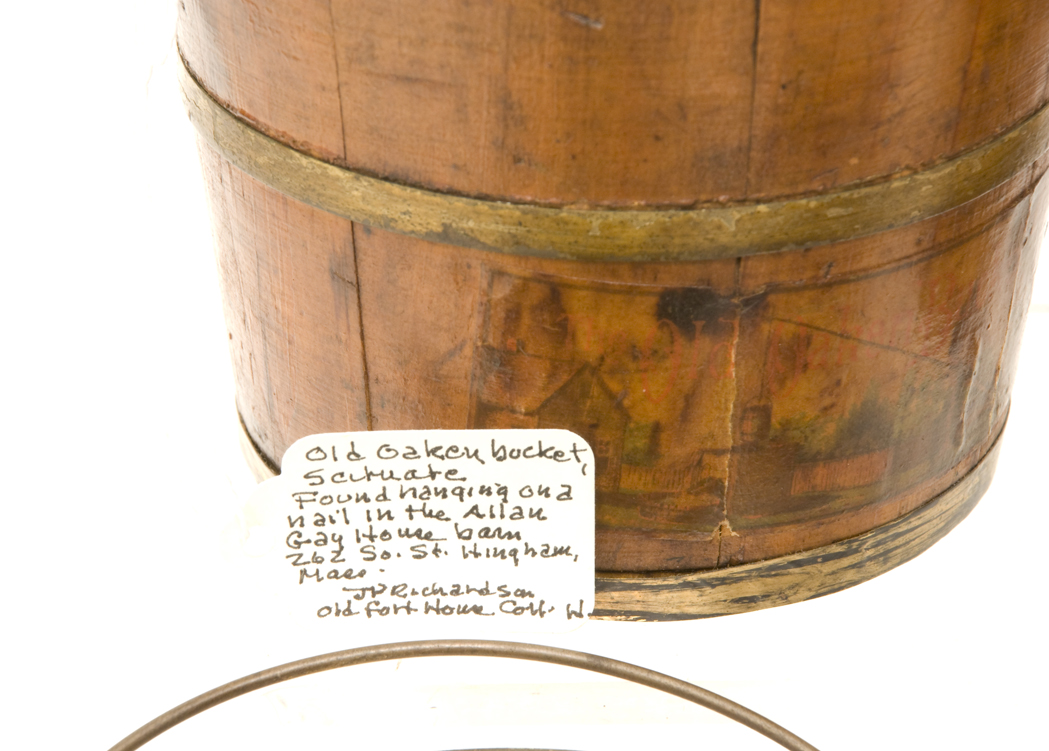 Old Oaken bucket,
Scituate
Found hanging on a
nail in the Allan
Gay House barn
262 So. St. Hingham,
Mass.
JP Richardson
Old Fort House Coll. W.